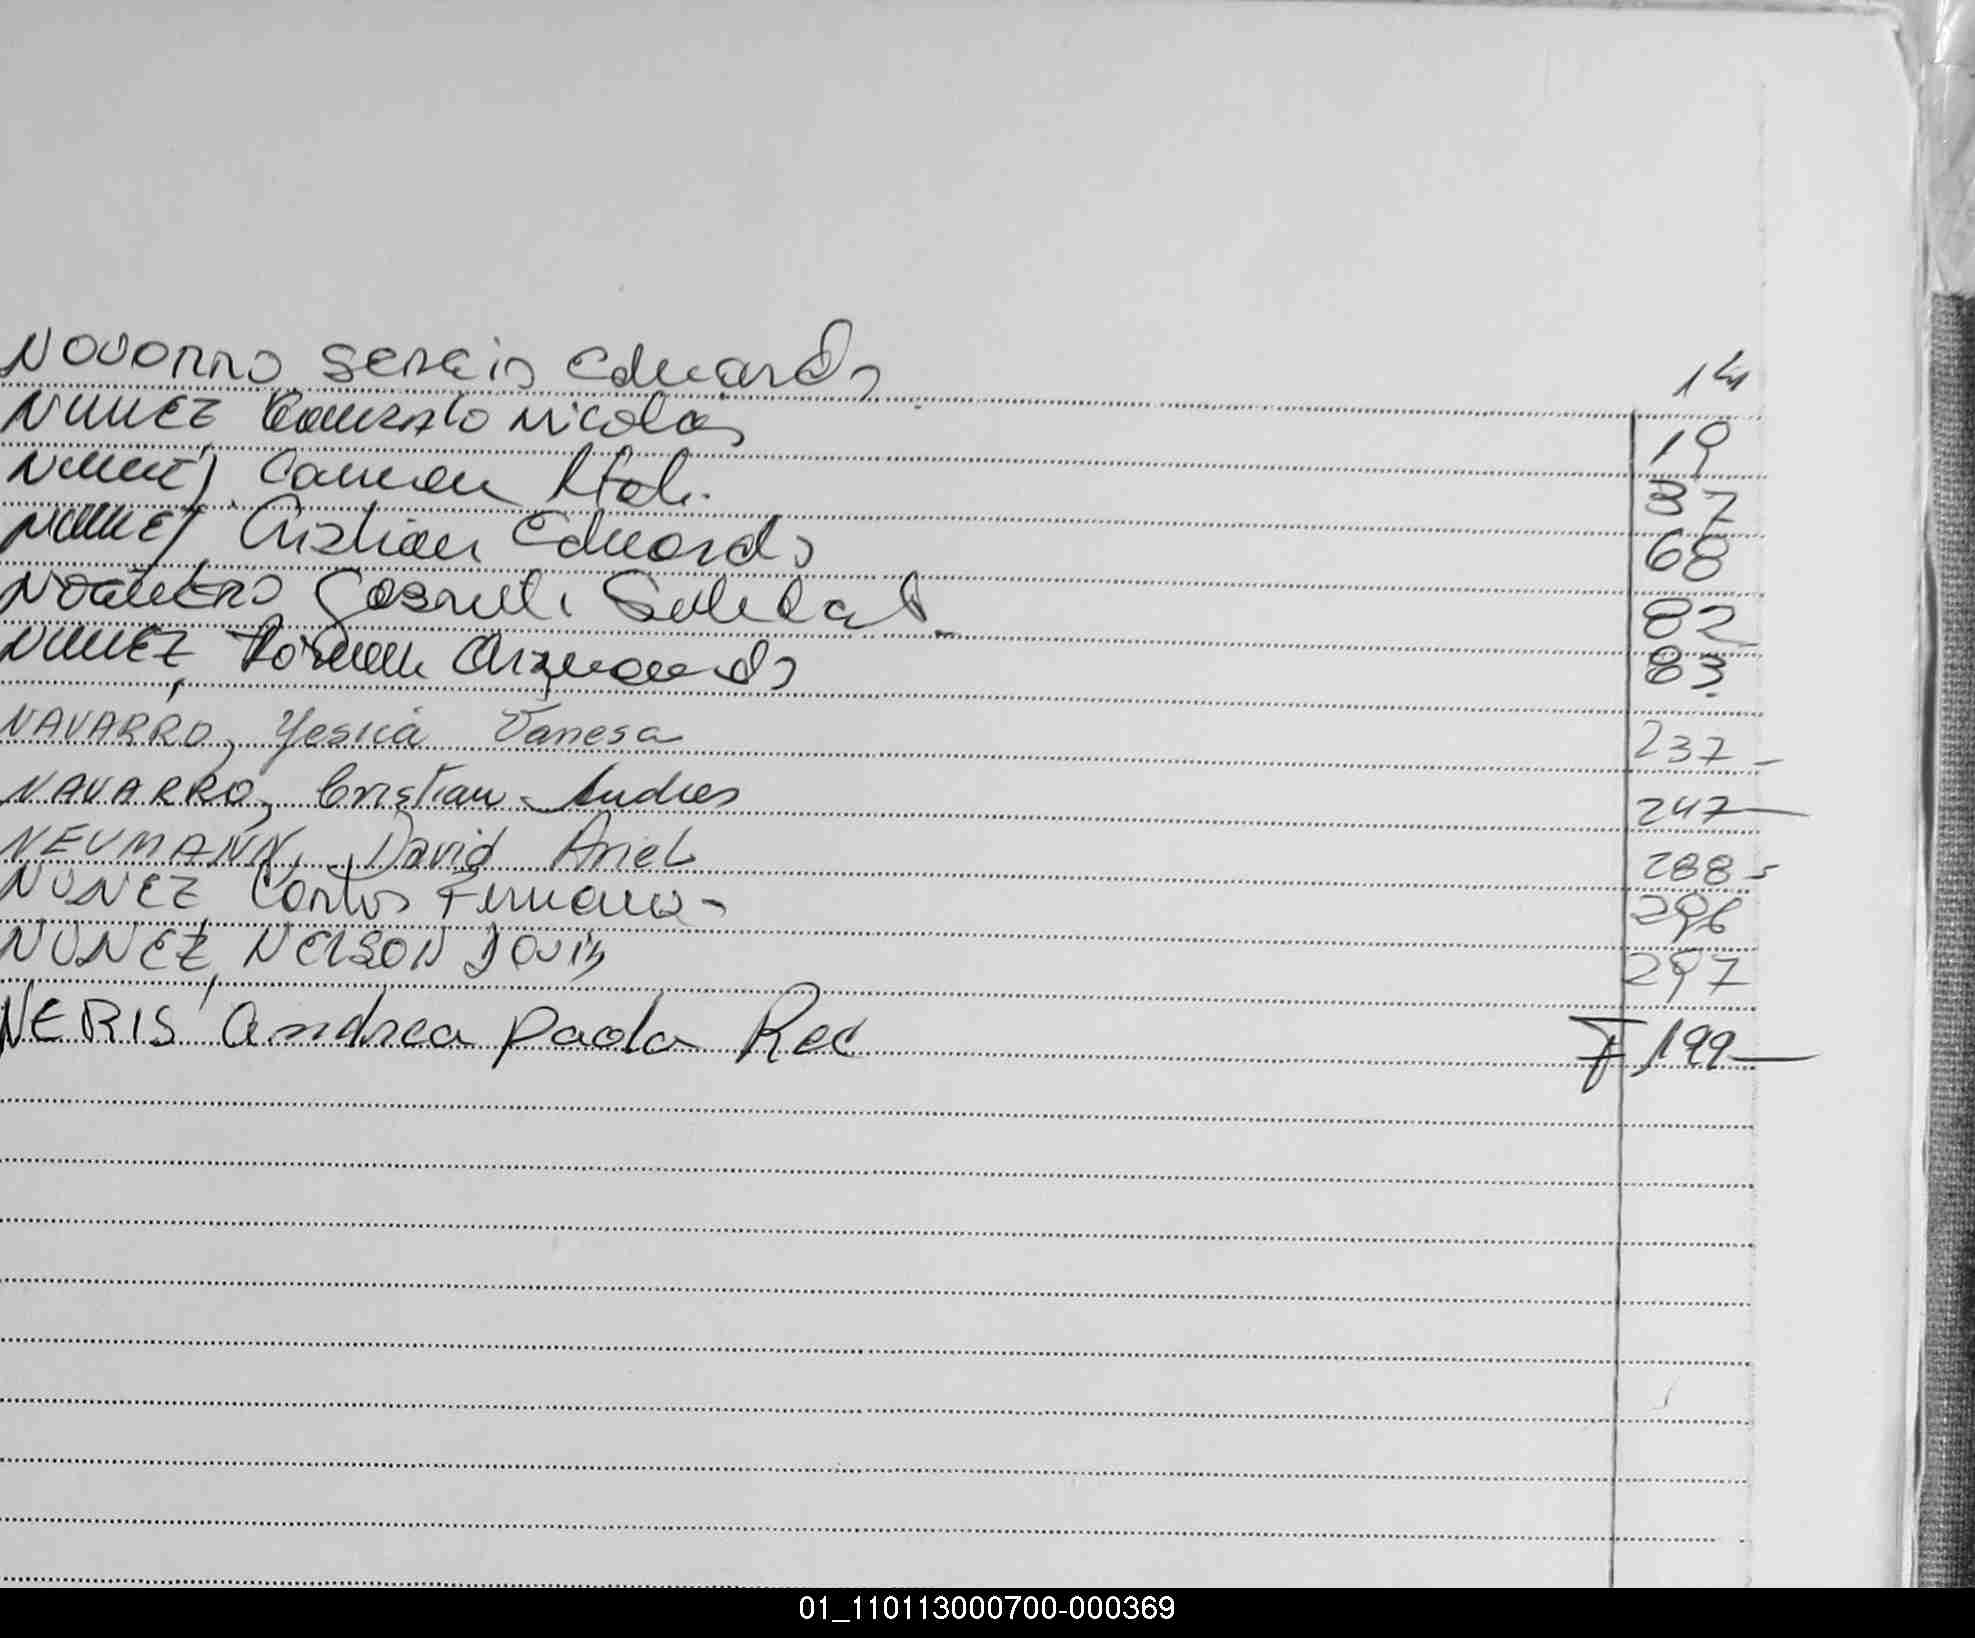 Navarro Sergio Eduardo 14
Nuñez Gonzalo Nicolas 19
Nuñez, Carmen 37
Nuñez, Cristian Eduardo 68
Gabriela Soledad 82
Nuñez, Armando 83
NAVARRO, Yesica Vanesa 237
NAVARRO, Cristian Andres 247
NEUMANN, David Ariel 288
NUNEZ Carlos 296
NUNEZ, NELSON 297
NERIS Andrea Paola Rec F 199
01_110113000700-000369